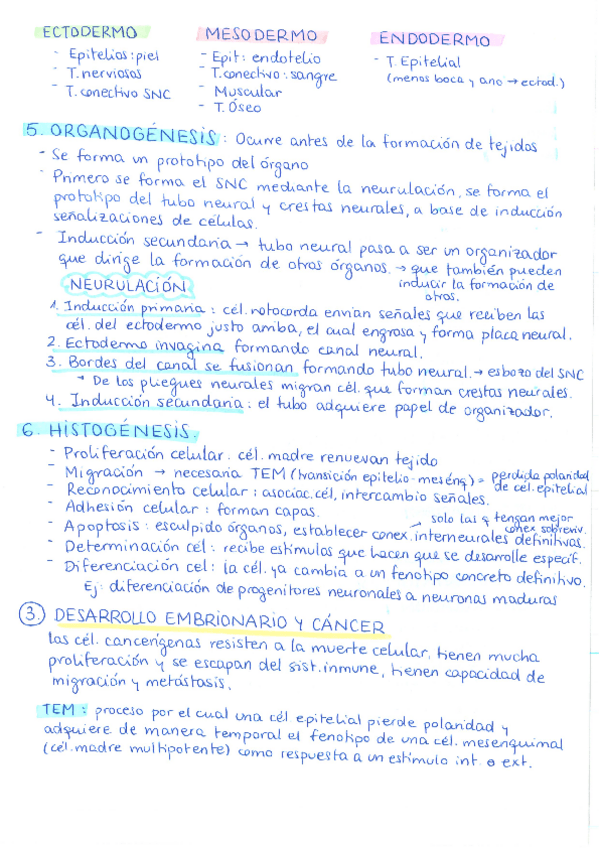 ECTODERMO
- Epitelios: piel
- T. nerviosos
- T. conectivo SNC
MESODERMO
- Epit: endotelio
- T. conectivo: sangre
- Muscular
- T. Óseo
ENDODERMO
- T. Epitelial
(menos boca y ano → ectod.)
5. ORGANOGÉNESIS: Ocurre antes de la formación de tejidos
- Se forma un prototipo del órgano
- Primero se forma el SNC mediante la neurulación, se forma el
prototipo del tubo neural y crestas neurales, a base de inducción
señalizaciones de células.
- Inducción secundaria → tubo neural pasa a ser un organizador
que dirige la formación de otros órganos. → que también pueden
inducir la formación de
otros.
NEURULACIÓN
1. Inducción primaria: cél. notocorda envían señales que reciben las
cél. del ectodermo justo arriba, el cual engrosa y forma placa neural.
2. Ectodermo invagina formando canal neural.
3. Bordes del canal se fusionan formando tubo neural. → esbozo del SNC
→ De los pliegues neurales migran cél. que forman crestas neurales.
4. Inducción secundaria: el tubo adquiere papel de organizador.
6. HISTOGÉNESIS.
- Proliferación celular. cél. madre renuevan tejido
- Migración → necesaria TEM (transición epitelio-mesénq) = perdida polaridad
de cél. epitelial
- Reconocimiento celular: asociac. cél, intercambio señales.
- Adhesión celular: forman capas.
- Apoptosis: esculpido órganos, establecer conex. interneurales definitivas.
solo las q tengan mejor
conex sobreviv.
- Determinación cél: recibe estímulos que hacen que se desarrolle específ.
- Diferenciación cel: la cél. ya cambia a un fenotipo concreto definitivo.
Ej: diferenciación de progenitores neuronales a neuronas maduras
3. DESARROLLO EMBRIONARIO Y CÁNCER
Las cél. cancerígenas resisten a la muerte celular, tienen mucha
proliferación y se escapan del sist. inmune, tienen capacidad de
migración y metástasis.
TEM: proceso por el cual una cél epitelial pierde polaridad y
adquiere de manera temporal el fenotipo de una cél. mesenquimal
(cél. madre multipotente) como respuesta a un estímulo int. o ext.